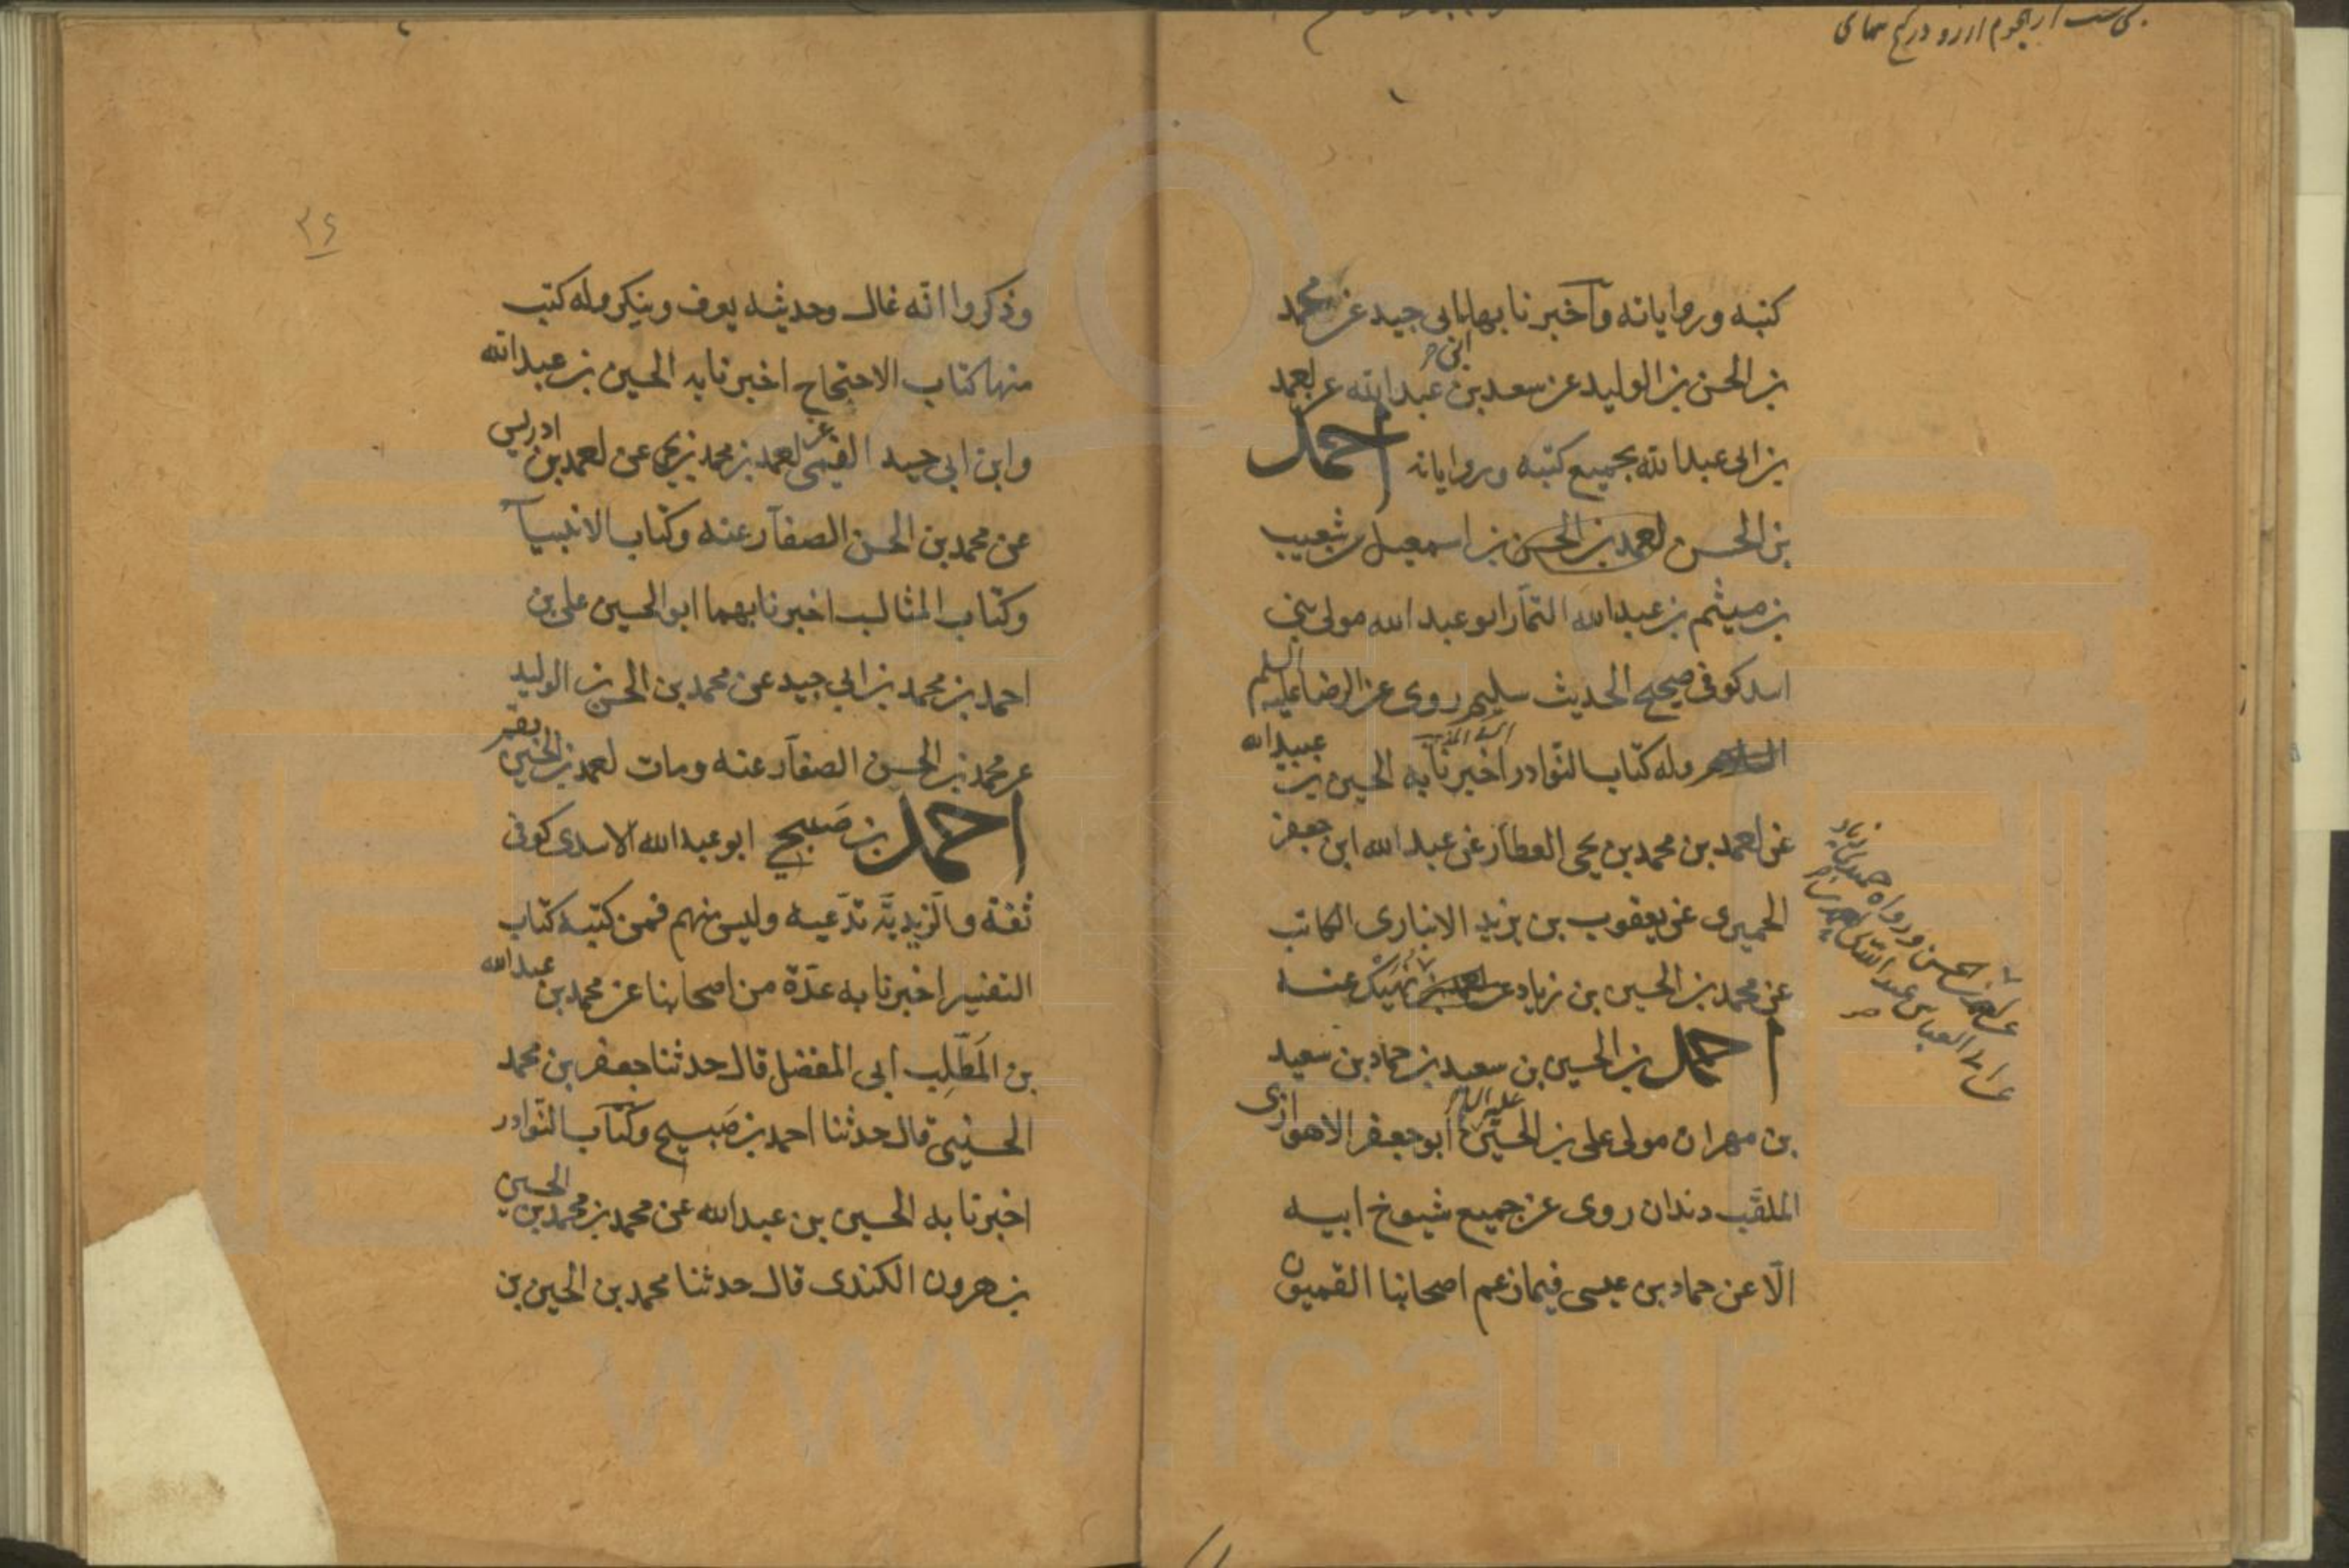 كتبه ورواياته وآخبرنا بها ابن ابى جيد عن محمد
بن الحسن بن الوليد عن سعد بن عبد الله عن احمد
بن ابى عبد الله بجميع كتبه ورواياته احمد
بن الحسن احمد بن الحسن بن اسمعيل بن شعيب
بن ميثم بن عبد الله التمّار ابو عبد الله مولى بنى
اسد كوفى صحيح الحديث سليم روى عن الرضا عليه السلم
وله كتاب النوادر اخبرنا به الحسين بن عبيد الله
عن احمد بن محمد بن يحيى العطآر عن عبد الله ابن جعفر
الحميرى عن يعقوب بن يزيد الانبارى الكاتب
عن محمد بن الحسين بن زياد عن احمد بن نهيك عنه
احمد بن الحسين بن سعيد بن حماد بن سعيد
بن مهران مولى على بن الحسين عليه السلم ابو جعفر الاهوازى
الملقّب دندان روى عن جميع شيوخ ابيه
الّا عن حماد بن عيسى فيما زعم اصحابنا القميون
٣٤
وذكروا انّه غال وحديثه يعرف وينكر وله كتب
منها كتاب الاحتجاج اخبرنا به الحسين بن عبد الله
وابن ابى جيد القمى عن احمد بن محمد بن يحيى عن احمد بن ادريس
عن محمد بن الحسن الصفآر عنه وكتاب الانبيآ
وكتاب المثالب اخبرنا بهما ابو الحسين على بن
احمد بن محمد بن ابى جيد عن محمد بن الحسن بن الوليد
عن محمد بن الحسن الصفآر عنه ومات احمد بن الحسين بقم
احمد بن صَبيح ابو عبد الله الاسدى كوفى
ثقة والزيديّة تدّعيه وليس منهم فمن كتبه كتاب
التفسير اخبرنا به عدّة من اصحابنا عن محمد بن عبد الله
بن المطّلب ابى المفضل قال حدثنا جعفر بن محمد
الحسينى قال حدثنا احمد بن صَبيح وكتاب النّوادر
اخبرنا به الحسين بن عبد الله عن محمد بن محمد بن الحسين
بن هرون الكندى قال حدثنا محمد بن الحسين بن
www.ical.ir